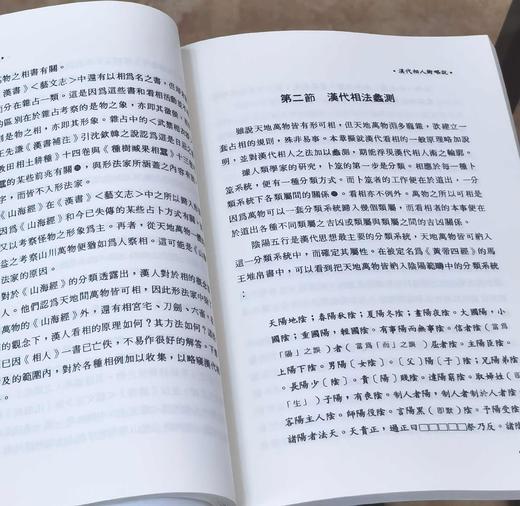 萬物之相書有關。
《漢書》《藝文志》中還有以相爲名之書，但
而分在雜占一類。這是因爲這些書和看相活動並不
的區別在於雜占考察的是物之象，亦即其徵候，
的，亦即其形象。雜占中的《武禁相衣器
王先謙《漢書補注》引沈欽韓之說認爲這是日
《教田相土耕種》十四卷與《種樹臧果相蠶》十三
蠶的某些前兆有關，與形法家所涵蓋之內容有
，而皆不入形法家。
《山海經》在《漢書》《藝文志》中之所以歸入
《山海經》和今已失傳的某些占卜方式有關，
又以考察怪物之形象爲主。再者，從天地萬物
益之考察山川萬物便猶如爲人察相。這可能是《山
形法家的原因。
對於《山海經》的分類透露出，漢人對於相的觀念
人。他們認爲天地間萬物皆可相，因此形法家中除
萬物的《山海經》外，還有相宮宅、刀劍、六畜、
的觀念下，漢人看相的原理如何？其方法如何？
已因《相人》一書已亡佚，不易作很好的解答。下
及的範圍內，對於各種相例加以收集，以略窺漢代
。
•漢代相人術略說•
第二節　漢代相法蠡測
雖說天地萬物皆有形可相，但天地萬物而多龐雜，欲建立一
套占相的規則，殊非易事。本章擬就漢代看相的一般原理略加說
明，並對漢代相人之法加以蠡測，期能得見漢代相人術之輪廓。
據人類學家的研究，卜筮的第一步是分類。相應於每一種卜
筮系統，便有一種分類方式。而卜筮者的工作便在於道出，一分
類系統下各類屬間的關係❶。看相亦不例外。萬物之所以可相是
因爲萬物可以一套分類系統歸入幾個類屬，而看相者的本事便在
於道出各種不同類屬之吉凶或類屬與類屬之間的吉凶關係。
陰陽五行是漢代思想最主要的分類系統，天地萬物皆可納入
這一分類系統中，而確定其屬性。在被定名爲《黃帝四經》的馬
王堆帛書中，可以看到把天地萬物皆納入陰陽範疇中的分類系統
：
天陽地陰；春陽秋陰；夏陽冬陰；晝陽夜陰。大國陽，小
國陰；重國陽，輕國陰。有事陽而無事陰。信者陰（當爲
「陽」之誤）者（當爲「而」之誤）屈者陰。主陽臣陰。
上陽下陰。男陽〔女陰〕。〔父〕陽〔子〕陰；兄陽弟陰
。長陽少〔陰〕。貴〔陽〕賤陰。達陽窮陰。取婦姓（
「生」）子陽，有喪陰。制人者陽，制人者制於人者陰
客陽主人陰。師陽役陰。言陽黑（即默）陰。予陽受陰
諸陽者法天。天貴正，過正曰□□□□□祭乃反。諸陰